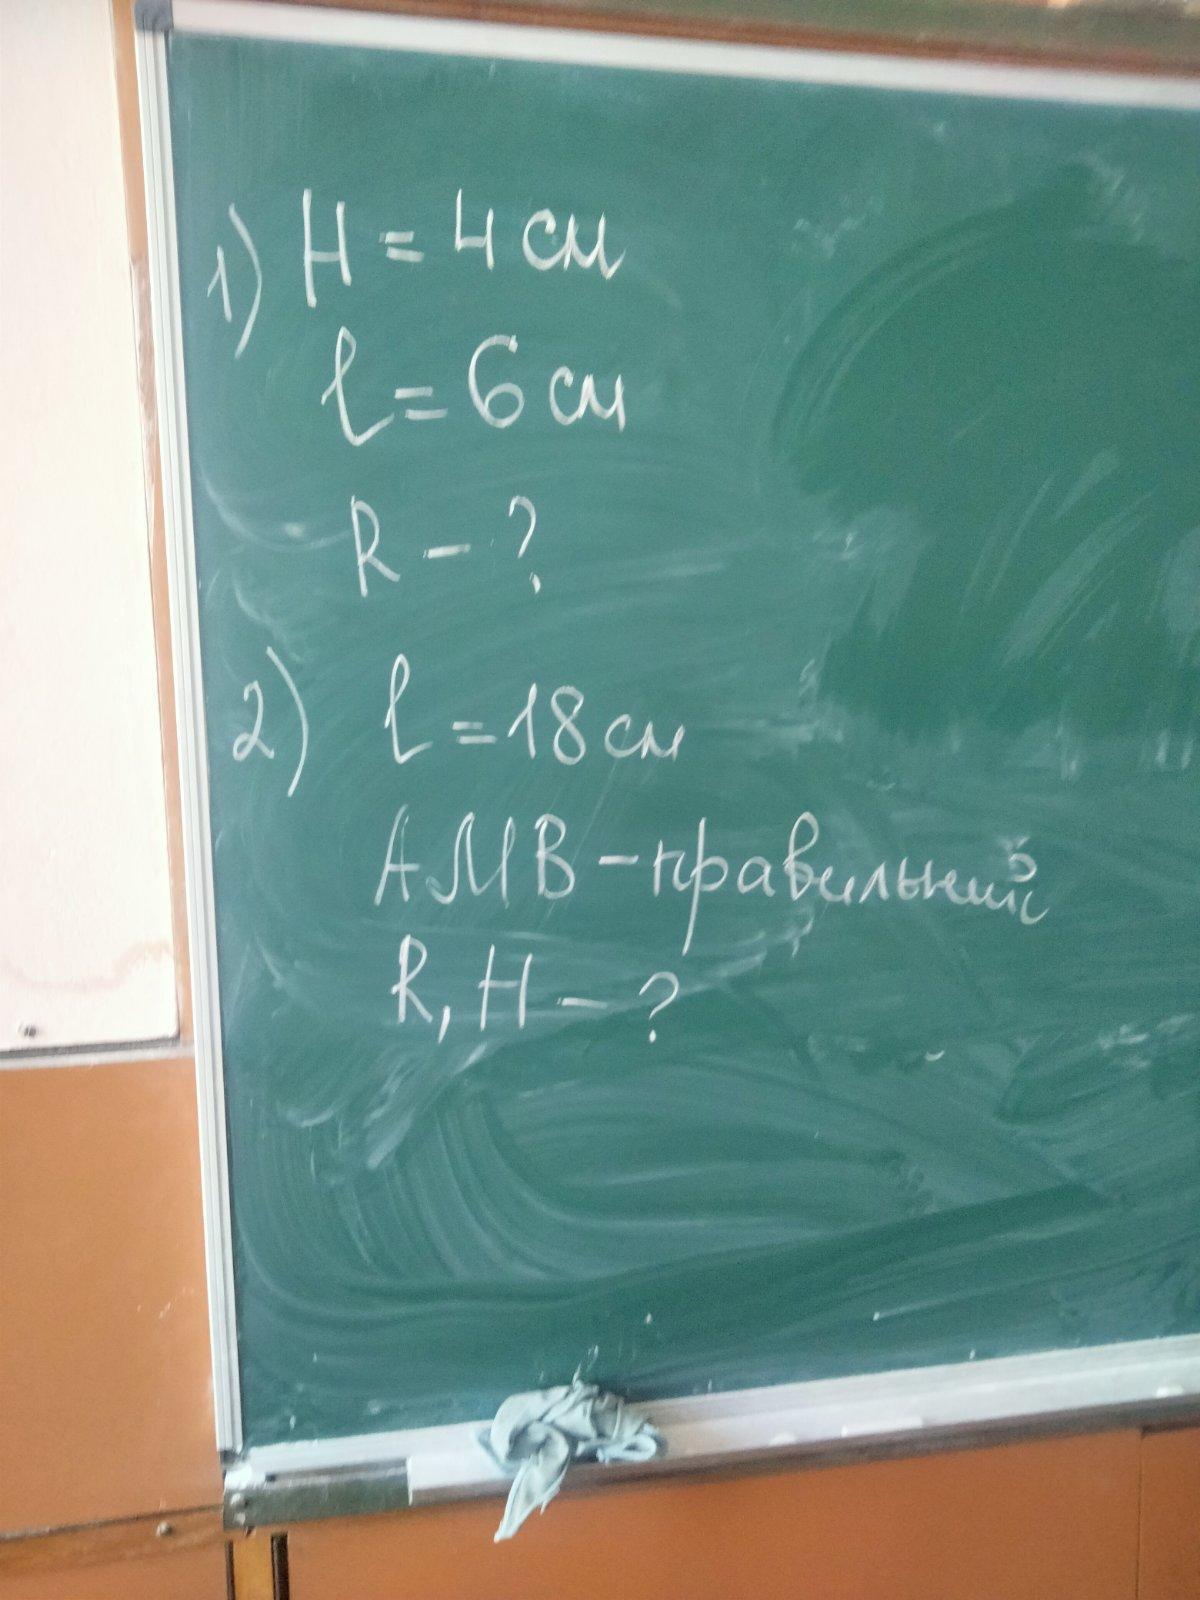 1) H = 4 см
l = 6 см
R – ?
2) l = 18 см
АМВ – правильный
R, H – ?